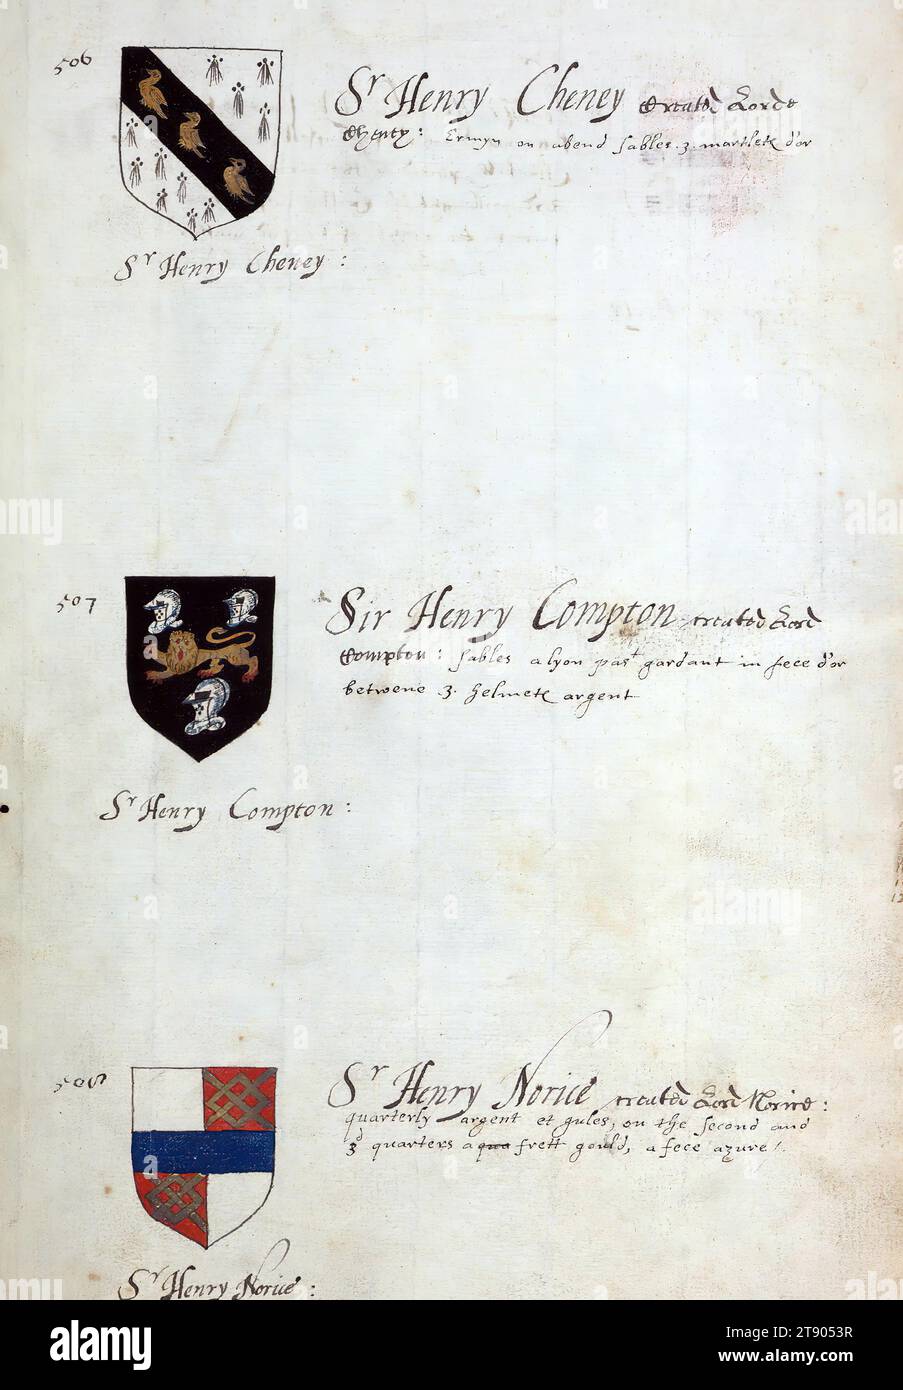 506
Sr Henry Cheney Created Lorde
Cheney: Ermyn on abend sables .3. martletz d'or
Sr Henry Cheney:
507
Sir Henry Compton created Lord
Compton: sables a lyon past gardant in fece d'or
betwene .3. helmetz argent
Sr Henry Compton:
508
Sr Henry Norice created Lord Norice:
quarterly argent et gules, on the second and
3d quarters a frett gould, a fece azure/.
Sr Henry Norice:
alamy
Image ID: 2T9053R
www.alamy.com